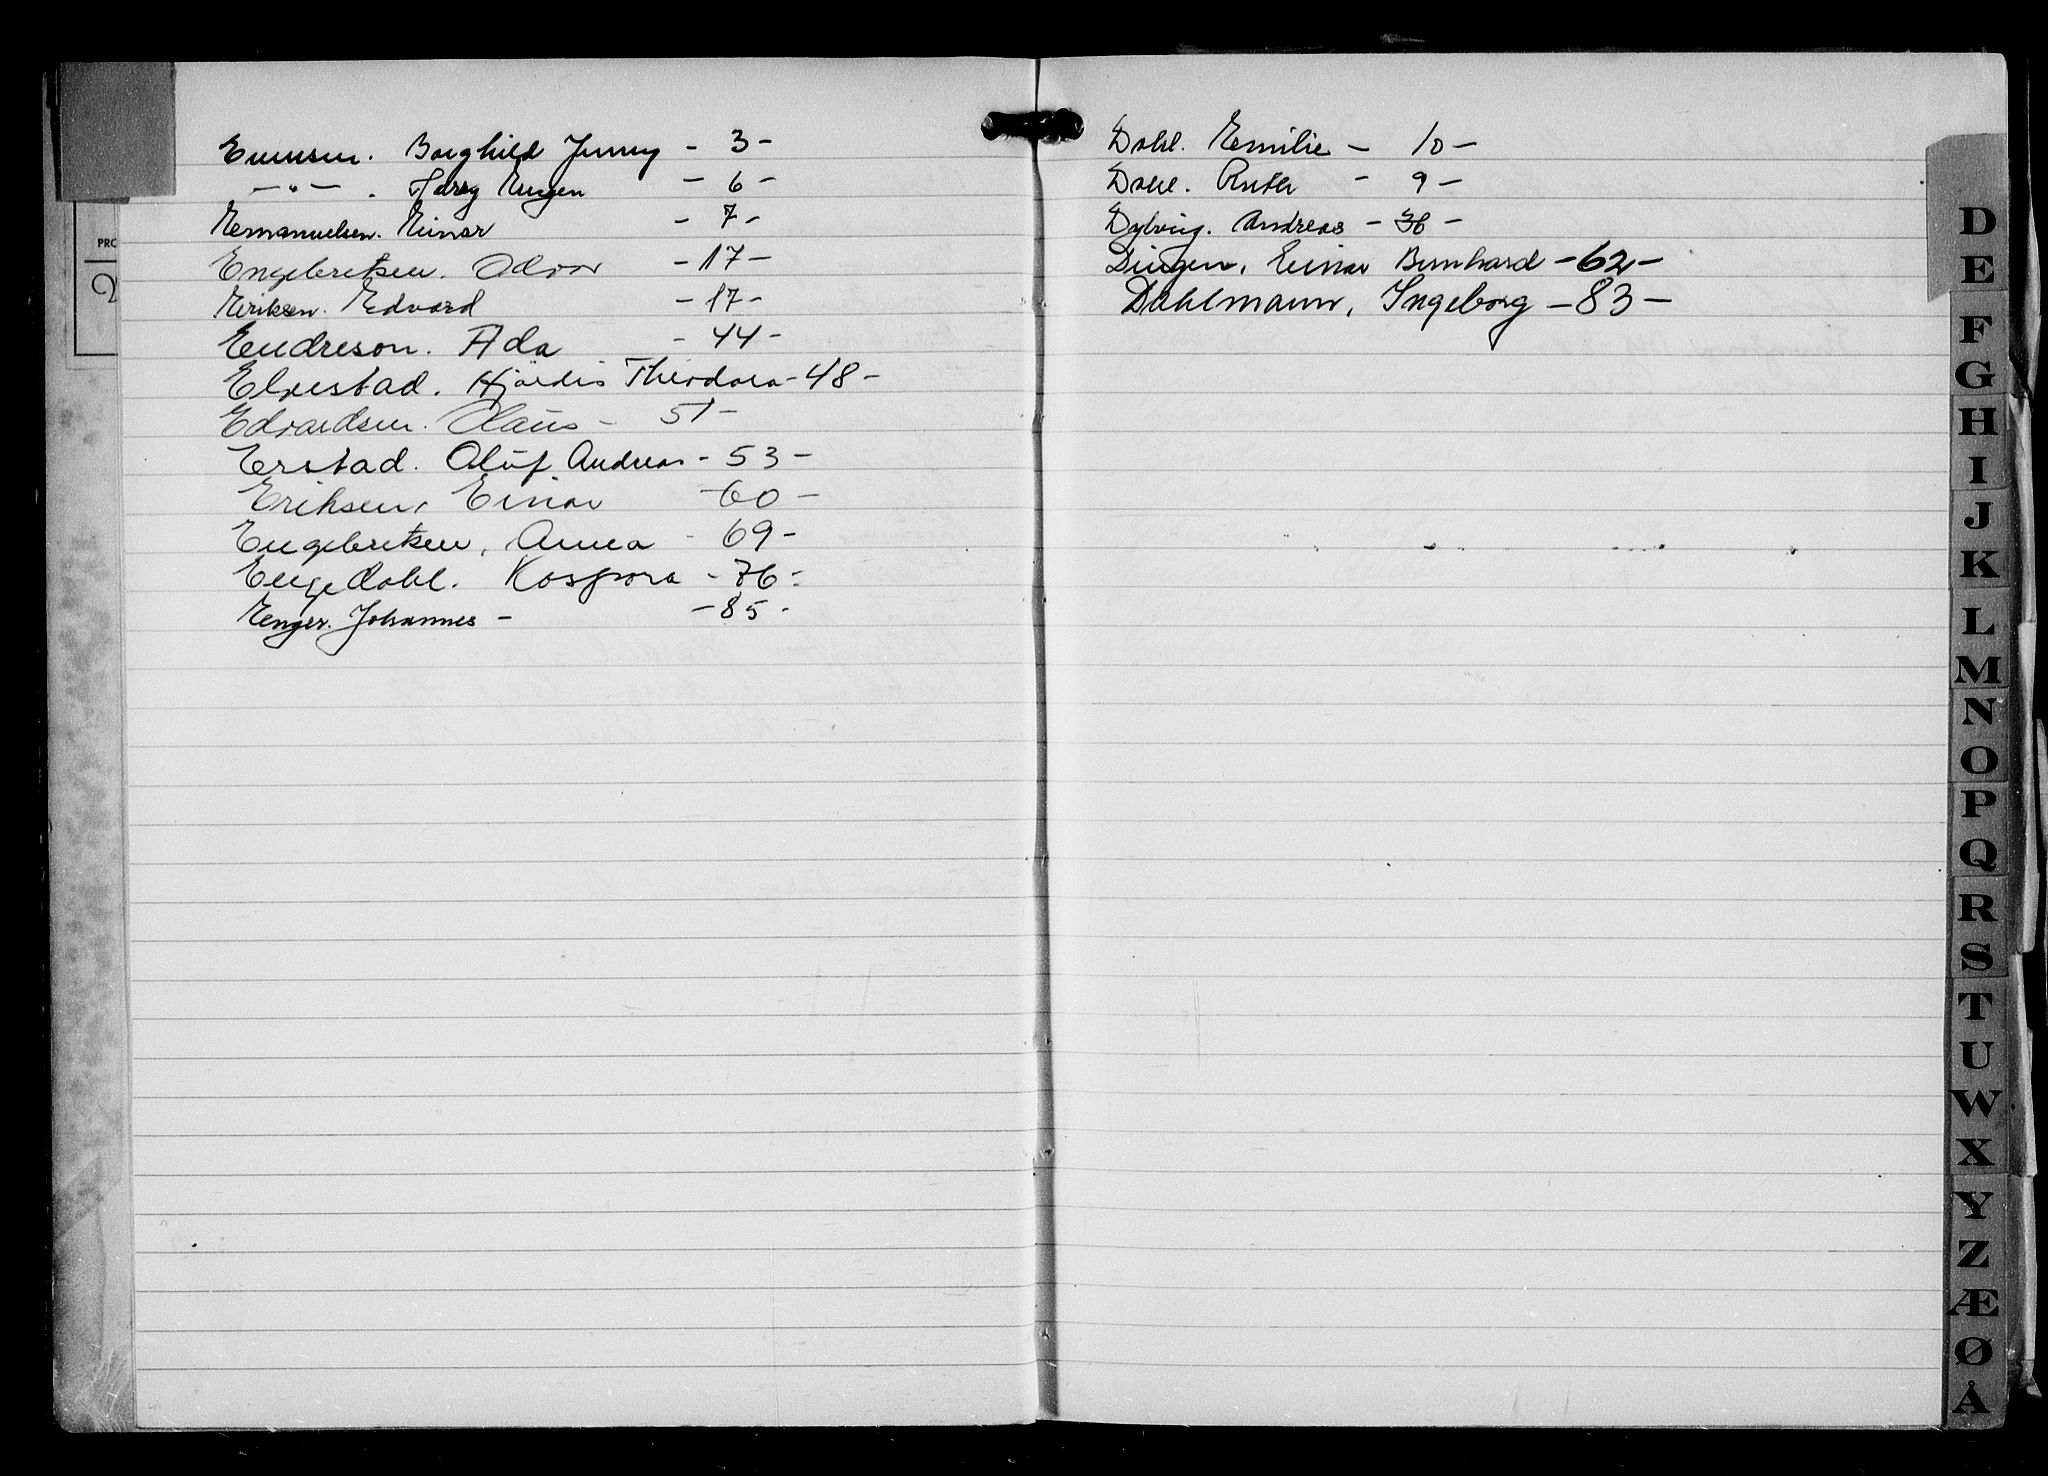 Evensen. Borghild Jenny - 3 -
- " - . Harry Eugen - 6 -
Emanuelsen. Einar - 7 -
Engebretsen. Oddvar - 17 -
Eriksen. Edvard - 17 -
Endreson. Ada - 44 -
Elvestad. Hjördis Theodora - 48 -
Edvardsen. Claus - 51 -
Erstad. Oluf Andreas - 53 -
Eriksen, Einar - 60 -
Engebretsen, Anna - 69 -
Engedahl. Kaspara - 76 -
Enger. Johannes - - 85 -
PRO
Dahl. Emilie - 10 -
Dahl. Ruth - 9 -
Dybvig. Andreas - 36 -
Dingen, Einar Bernhard - 62 -
Dahlmann, Ingeborg - 83 -
D
E
F
G
H
I
J
K
L
M
N
O
P
Q
R
S
T
U
W
X
Y
Z
Æ
Ø
Å